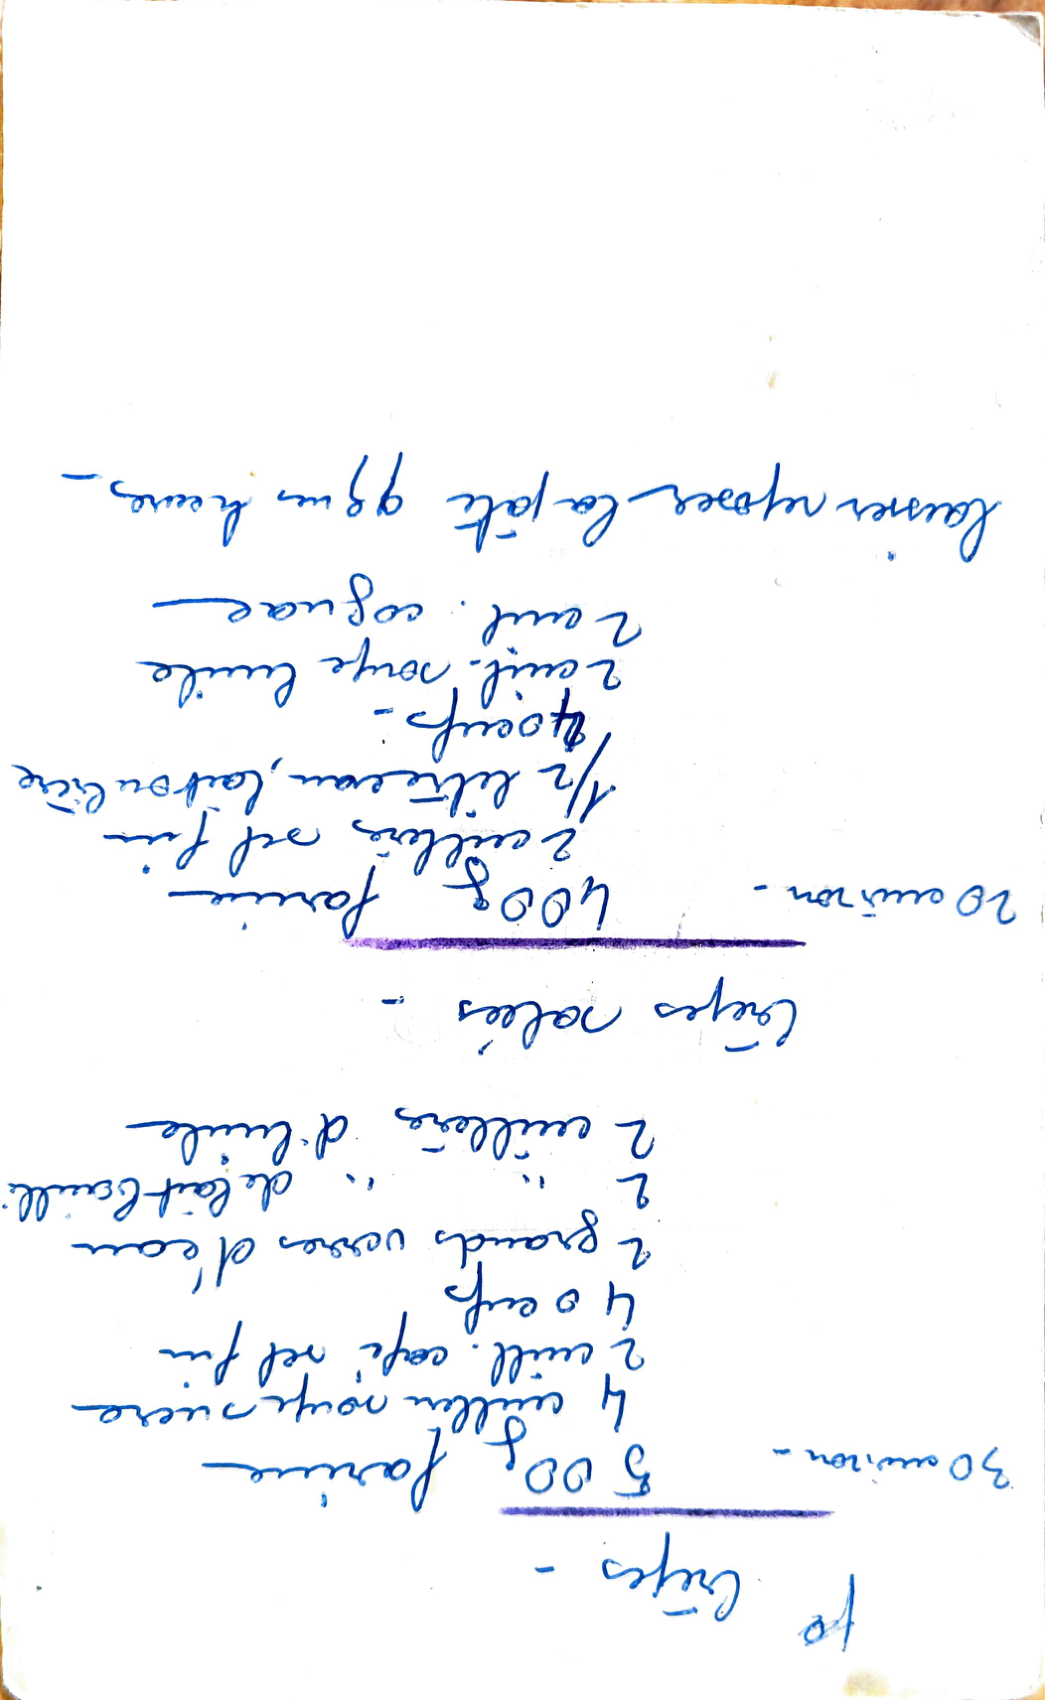 pr Crêpes -
30 environ - 500g farine
4 cuillers soupe sucre
2 cuill. café sel fin
4 oeufs
2 grands verres d'eau
2 " " de lait bouilli
2 cuillères d'huile
Crêpes salées -
20 environ - 400g farine
2 cuillères sel fin
1/2 litre eau, lait ou bière
4 oeufs -
2 cuil. soupe huile
2 cuil. cognac
laisser reposer la pâte qques heures -